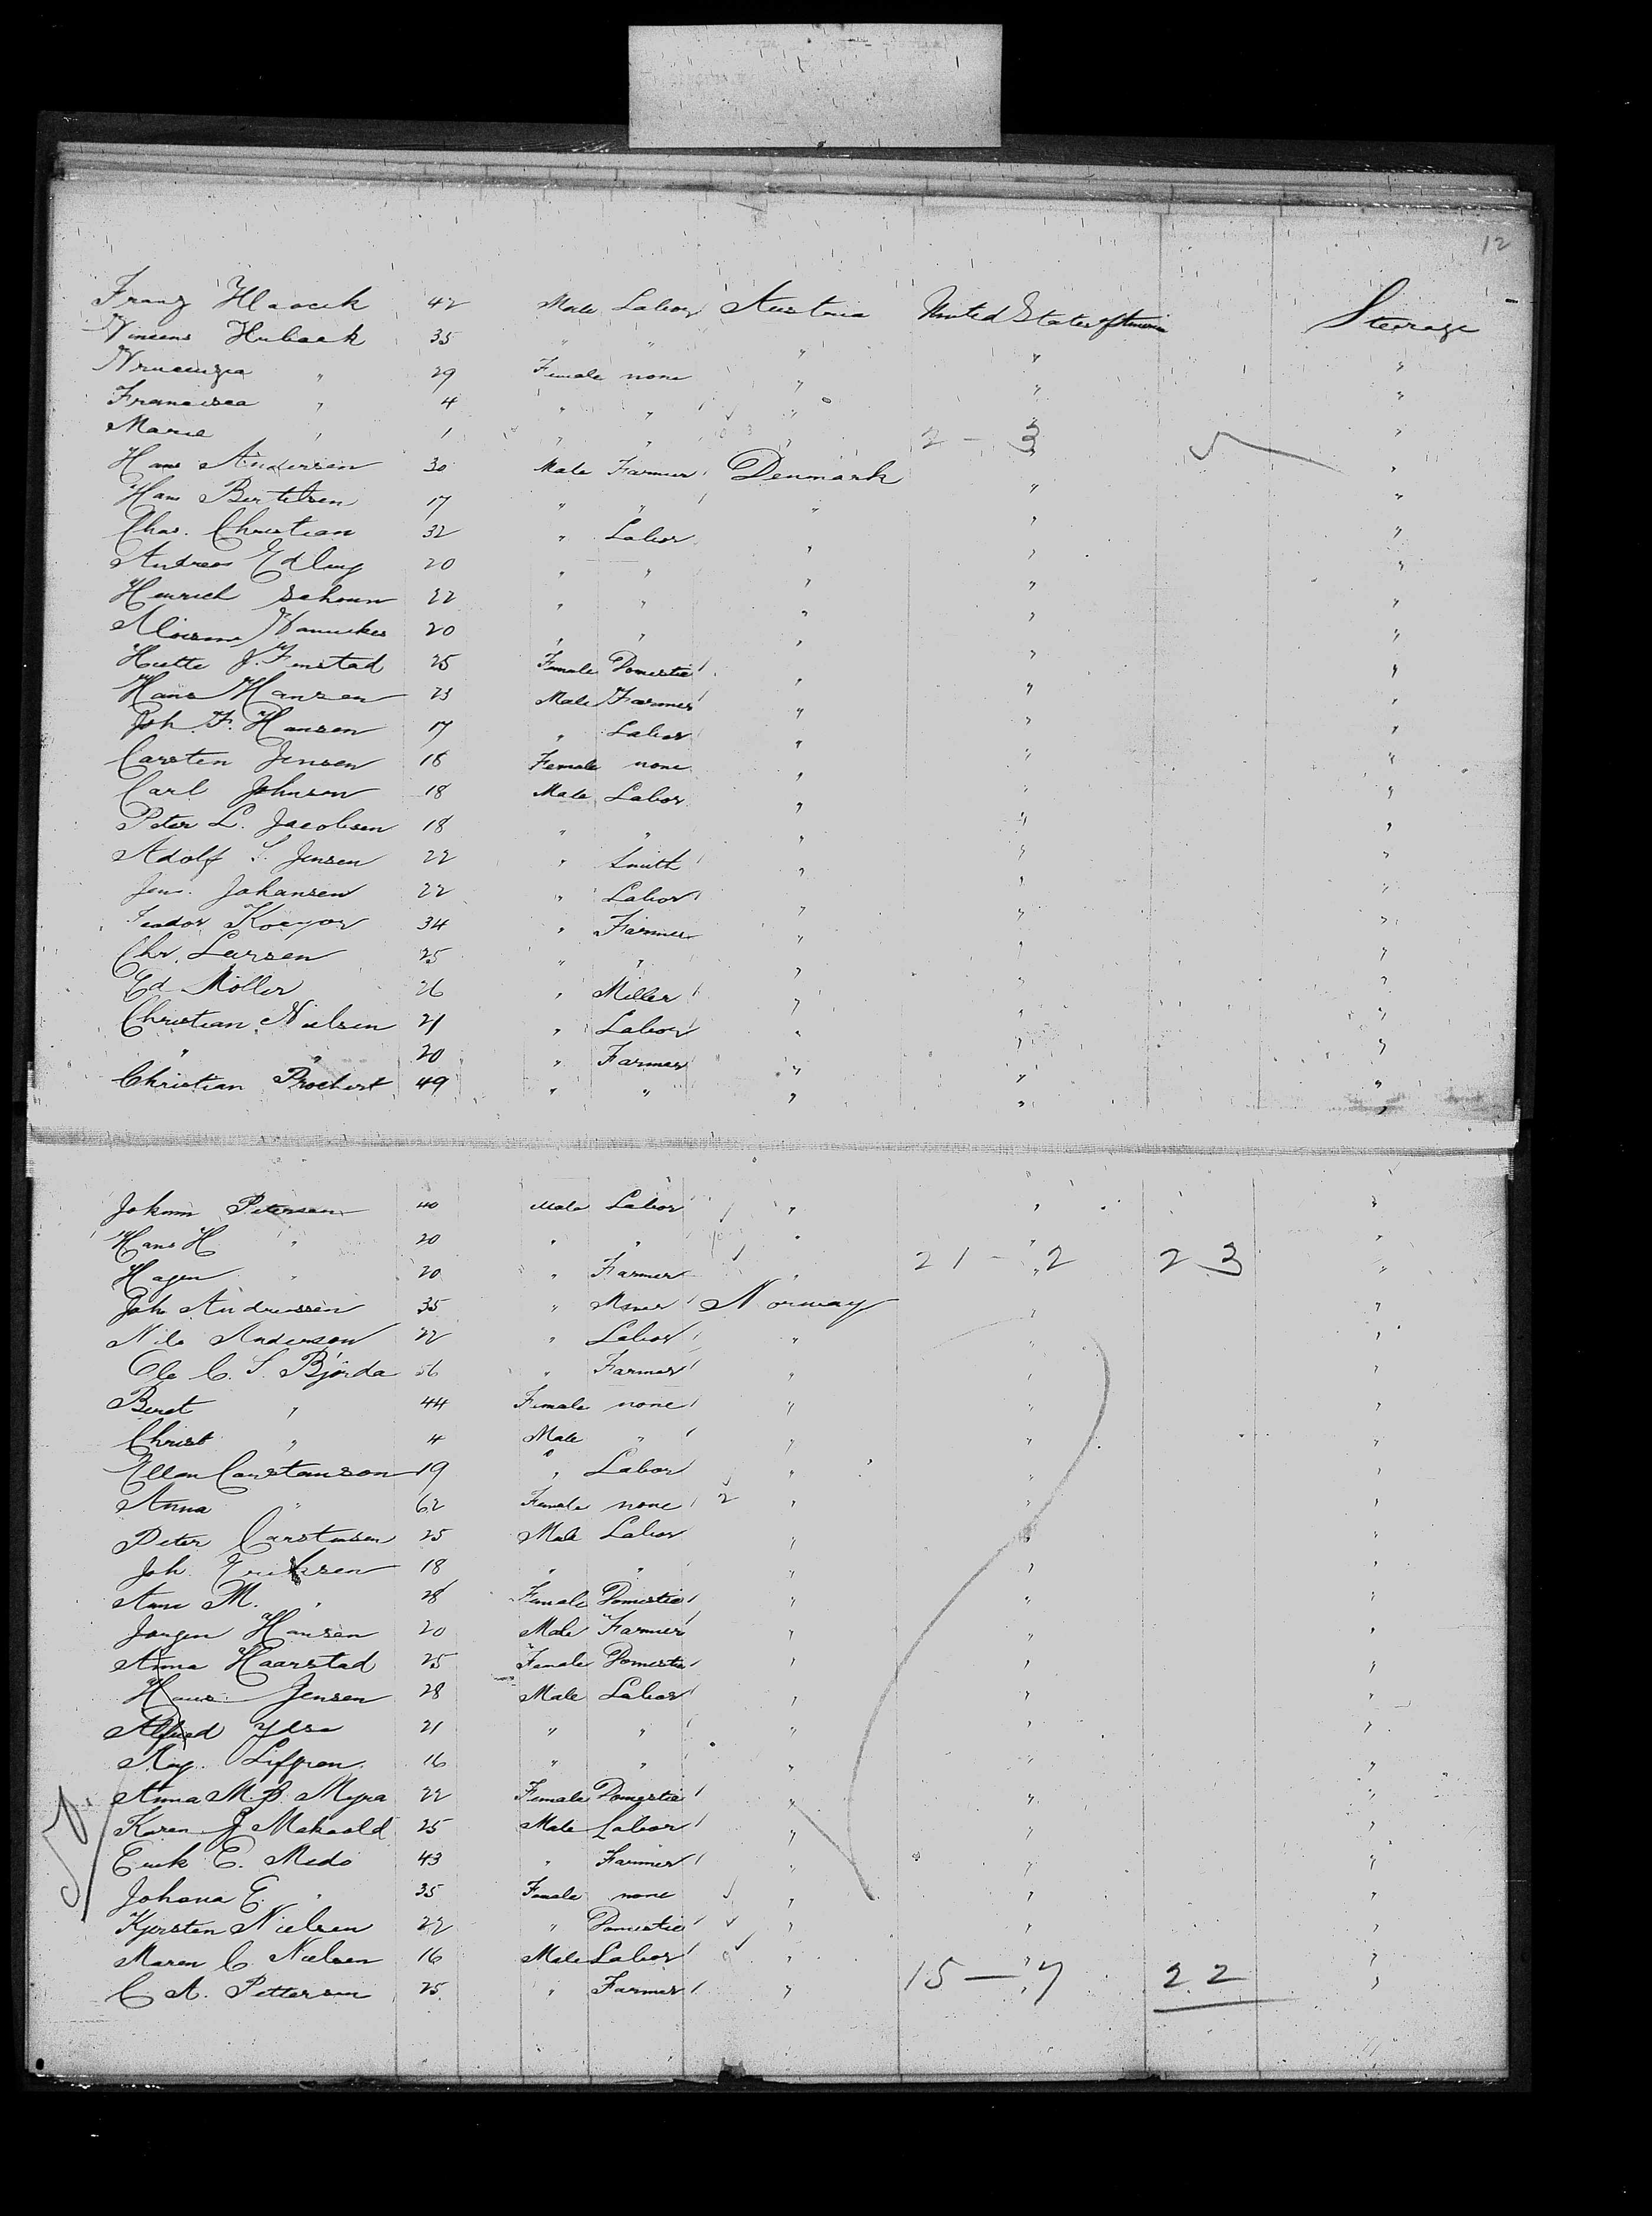 12
Franz Hlavcik 42 Male Labor Austria United States of America Steerage
Vincens Huback 35 " " " " "
" 29 Female none " " "
Francisca " 4 " " " " "
Marie " 1 " " " 2 - 3 5 "
Hans Andersen 30 Male Farmer Denmark " "
Hans Bertelsen 17 " " " " "
Chas. Christian 32 " Labor " " "
Andreas Edling 20 " " " " "
Heinrich 22 " " " " "
20 " " " " "
J. Finstad 25 Female Domestic " " "
Hans Hansen 23 Male Farmer " " "
Joh. F. Hansen 17 " Labor " " "
Carsten Jensen 18 Female none " " "
Carl Johnson 18 Male Labor " " "
Peter L. Jacobsen 18 " " " " "
Adolf S. Jensen 22 " Smith " " "
Jens. Johansen 22 " Labor " " "
34 " Farmer " " "
Chr. Larsen 25 " " " " "
Ed Möller 26 " Miller " " "
Christian Nielsen 21 " Labor " " "
" " 20 " Farmer " " "
Christian Prochert 49 " " " " "
Johann Petersen 40 Male Labor " " "
Hans H " 20 " " " " "
Hagen " 20 " Farmer " 21 - 2 23 "
Joh Andreassen 35 " Miner Norway " "
Nils Anderson 22 " Labor " " "
Ole C. S. Bjórda 56 " Farmer " " "
Beret " 44 Female none " " "
Christ " 4 Male " " " "
Ellen Carstenson 19 " Labor " " "
Anna " 62 Female none 2 " " "
Peter Carstensen 25 Male Labor " " "
Joh. Eriksen 18 " " " " "
Ane M. " 28 Female Domestic " " "
Jorgen Hansen 20 Male Farmer " " "
Anna Haarstad 25 Female Domestic " " "
Hans Jensen 28 Male Labor " " "
Alfred 21 " " " " "
Aug. 16 " " " " "
Anna M. B. Myra 22 Female Domestic " " "
Karen J 25 Male Labor " " "
Erik E. Medo 43 " Farmer " " "
Johana E. " 35 Female none " " "
Kjersten Nielsen 22 " Domestic " " "
Maren C. Nielsen 16 Male Labor " " "
C A. Petterson 25 " Farmer " 15 - 7 22 "